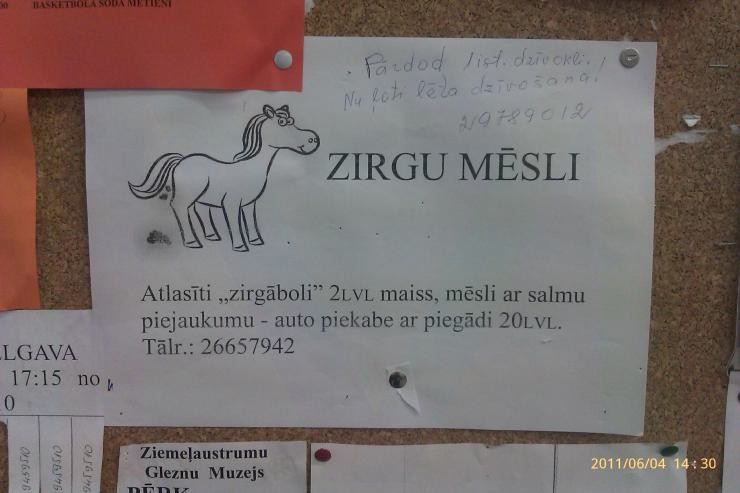 00 BASKETBOLA SODA METIENI
Pārdod 1 ist. dzīvokli.!
Nu ļoti lēta dzīvošana!
29789012
ZIRGU MĒSLI
Atlasīti „zirgāboli” 2LVL maiss, mēsli ar salmu
piejaukumu - auto piekabe ar piegādi 20LVL.
Tālr.: 26657942
ELGAVA
17:15 no
0
9459510
9459510
9459510
Ziemeļaustrumu
Gleznu Muzejs
PĒRK
2011/06/04 14:30